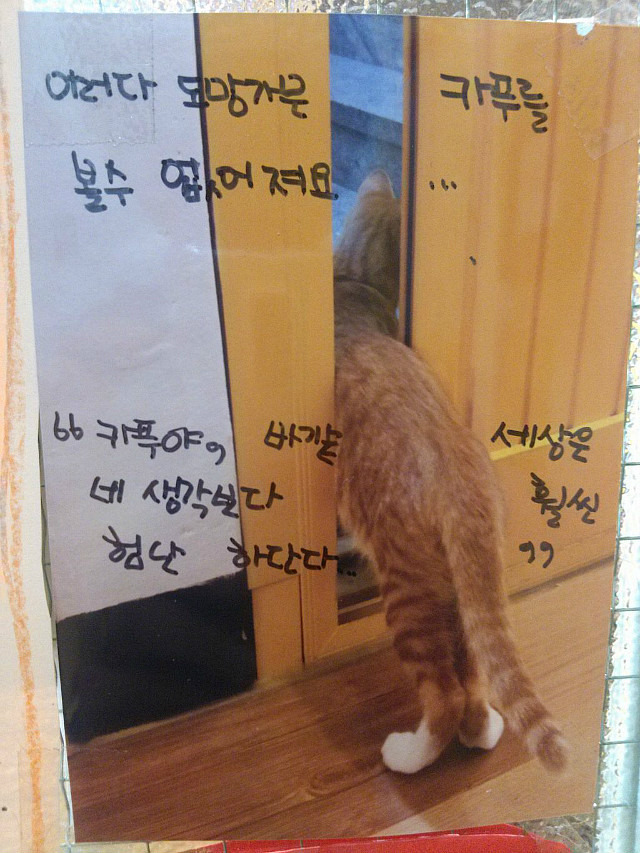 이러다 도망가믄 카푸를
볼수 없어져요 ...
“카푹야, 바깥 세상은
네 생각보다 훨씬
험난 하단다... ”